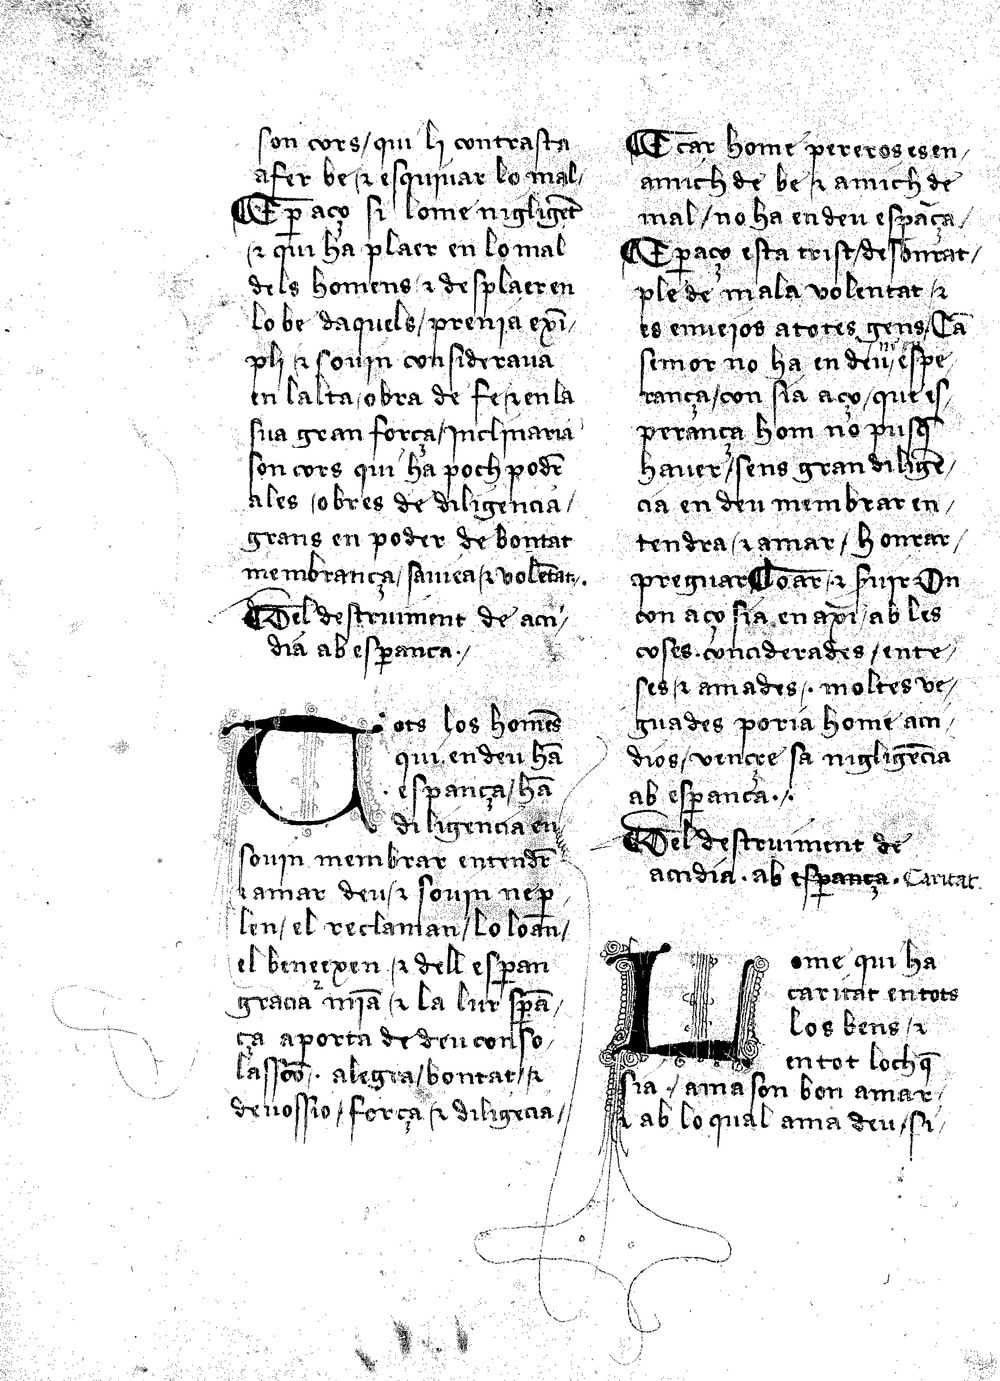 son cors / qui li contrasta
a fer be / ⁊ esquiuar lo mal /
E p̲ aço si lome nigligēt
/ ⁊ qui ha plaer en lo mal
dels homens ⁊ desplaer en
lo be daquels / prenia exī /
pli / ⁊ souin consideraua
en lalta / obra de fe / ⁊ en la
sua gran força / Inclinaria
son cors qui ha poch podr̄
a les / obres de diligencia /
grans en poder de bontat
membrança / sauiea / ⁊ volētat / .
Del destruiment de aci /
dia ab esp̲ança . /
Tots los homēs
qui en deu hā
esp̲ança / hā
diligencia en
souin membrar entendr̄
⁊ amar deu / ⁊ souin nep̲
len / el reclaman / lo loan /
el beneexen / ⁊ dell esp̲an
gracia mīa / ⁊ la lur sp̲ā /
ça aporta de deu conso /
lassio . alegra / bontat / ⁊
deuossio / força / ⁊ diligēcia /
E car home pereros es en /
amich de be ⁊ amich de
mal / no ha en deu esp̲aça /
E p̲ aço esta trist / desonrat /
ple de mala volentat / ⁊
es enueios a totes gens / Cā
semor no ha en deu / espe /
rança / con sia aço / que es /
perança hom no pusq̄
hauer / sens gran diligē /
cia en deu membrar en /
tendra / ⁊ amar / honrar /
preguar Loar / ⁊ s̄uir On
con aço sia en axi / ab les
coses . conciderades / ente /
ses / ⁊ amades / . moltes ve /
guades poria home aci /
dios / vencre sa nigligēcia
ab esp̲ança . / .
Del destruiment de
acidia . ab esp̲ança . Caritat .
Lome qui ha
caritat en tots
los bens / ⁊
en tot loch q̄
sia . / ama son bon amar /
⁊ ab lo qual ama deu / si /